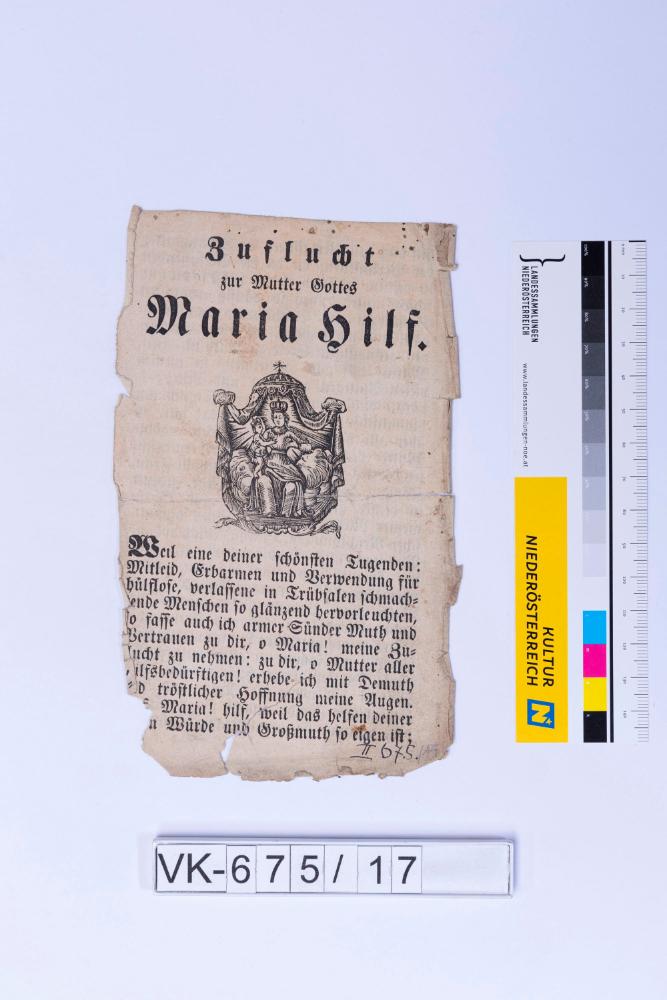 Zuflucht
zur Mutter Gottes
Maria Hilf.
Weil eine deiner schönsten Tugenden:
Mitleid, Erbarmen und Verwendung für
hülflose, verlassene in Trübsalen schmach-
ende Menschen so glänzend hervorleuchten,
o fasse auch ich armer Sünder Muth und
Vertrauen zu dir, o Maria! meine Zu-
lucht zu nehmen: zu dir, o Mutter aller
ilfsbedürftigen! erhebe ich mit Demuth
d tröstlicher Hoffnung meine Augen.
Maria! hilf, weil das helfen deiner
n Würde und Großmuth so eigen ist;
II 675
VK-675/17
LANDESSAMMLUNGEN
NIEDERÖSTERREICH
www.landessammlungen-noe.at
KULTUR
NIEDERÖSTERREICH
N